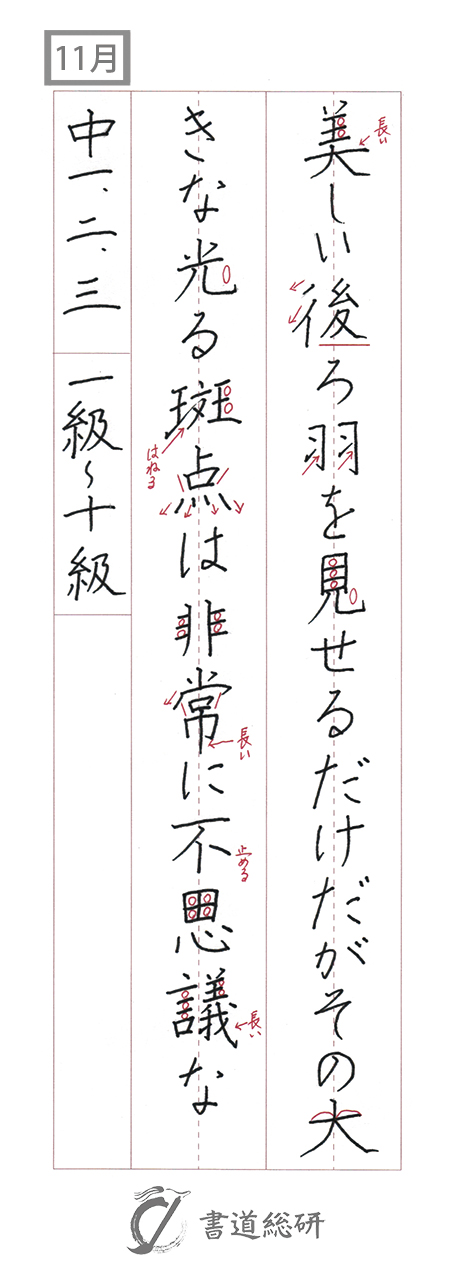 11月
美しい後ろ羽を見せるだけだがその大
きな光る斑点は非常に不思議な
中一、二、三 一級～十級
長い
はねる
長い
止める
長い
書道総研